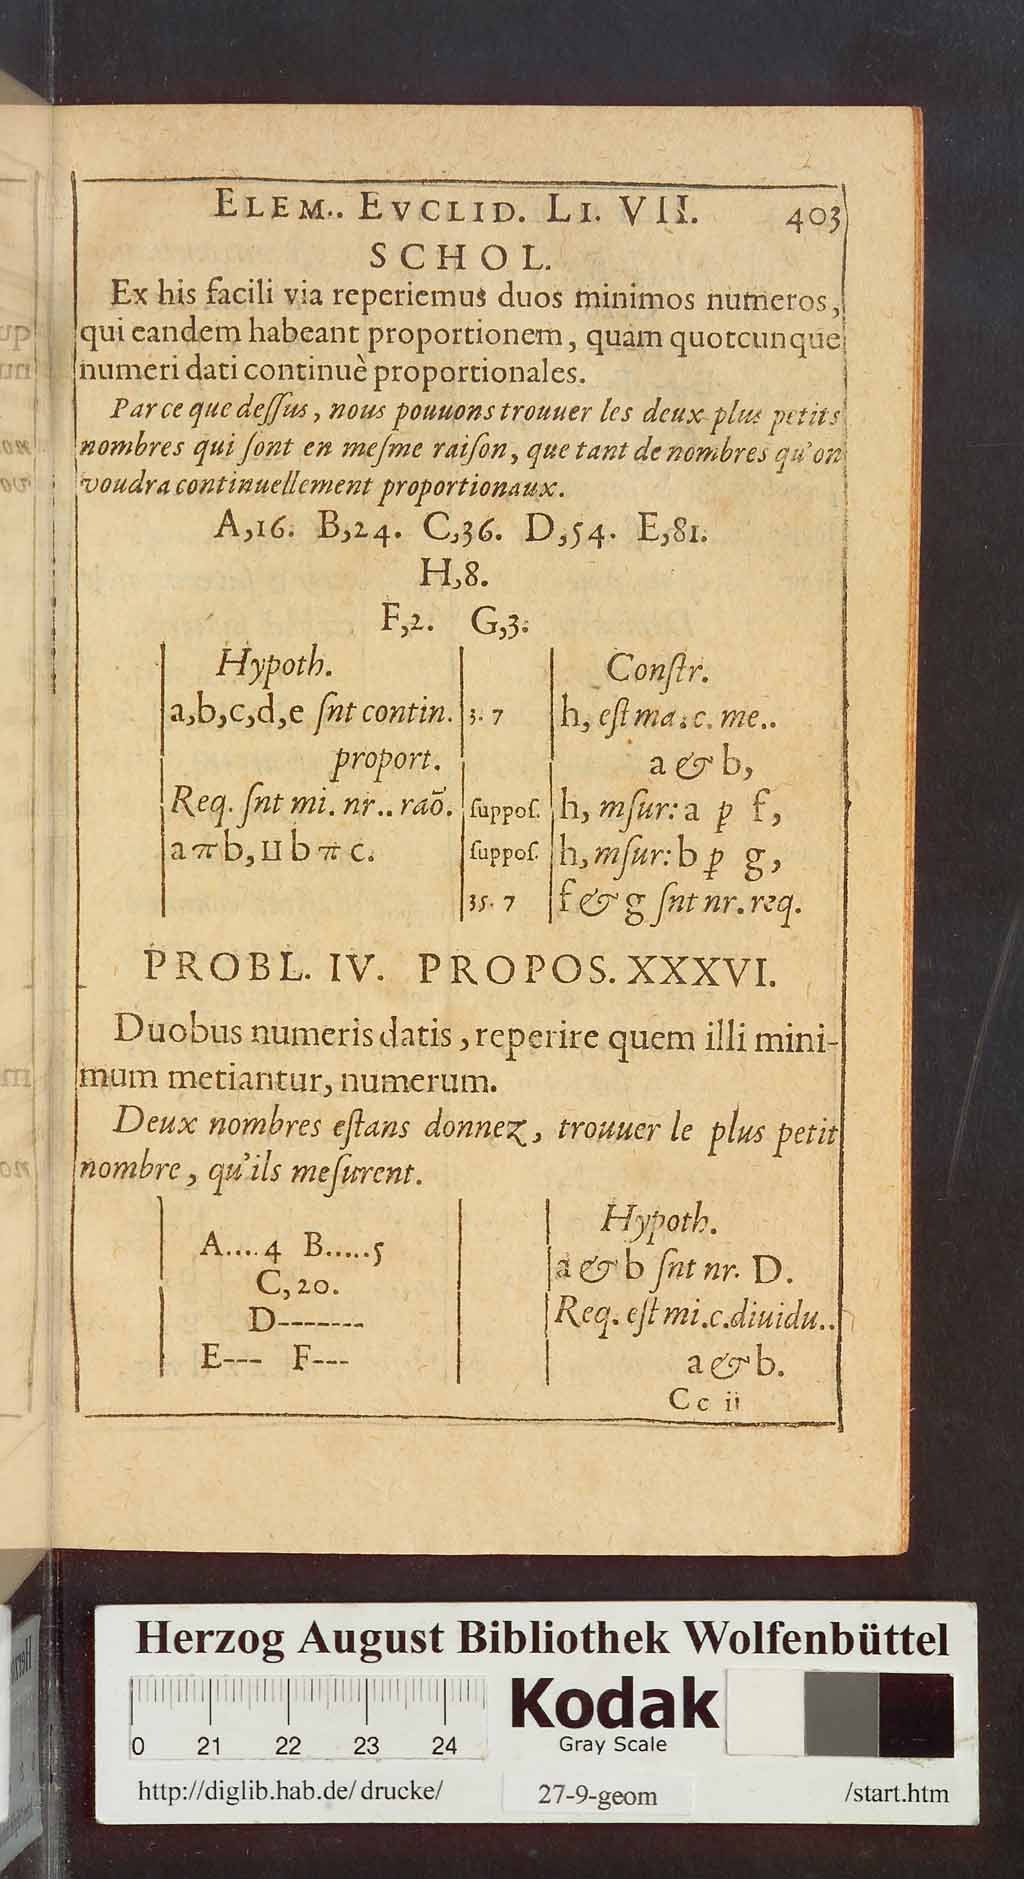 ELEM.. EVCLID. LI. VII. 403
SCHOL.
Ex his facili via reperiemus duos minimos numeros,
qui eandem habeant proportionem, quam quotcunque
numeri dati continuè proportionales.
Par ce que deſſus, nous pouuons trouuer les deux plus petits
nombres qui ſont en meſme raiſon, que tant de nombres qu'on
voudra continuellement proportionaux.
A,16. B,24. C,36. D,54. E,81.
H,8.
F,2. G,3.
Hypoth.
a,b,c,d,e ſnt contin.
proport.
Req. ſnt mi. nr.. raõ.
a π b, II b π c.
3. 7
suppoſ.
suppoſ.
35. 7
Conſtr.
h, eſt ma. c. me..
a & b,
h, mſur: a p f,
h, mſur: b p g,
f & g ſnt nr. req.
PROBL. IV. PROPOS. XXXVI.
Duobus numeris datis, reperire quem illi mini-
mum metiantur, numerum.
Deux nombres eſtans donnez, trouuer le plus petit
nombre, qu'ils meſurent.
A....4 B.....5
C,20.
D-------
E--- F---
Hypoth.
a & b ſnt nr. D.
Req. eſt mi.c.diuidu..
a & b.
Cc ii
Herzog August Bibliothek Wolfenbüttel
0 21 22 23 24
Kodak
Gray Scale
http://diglib.hab.de/ drucke/ 27-9-geom /start.htm